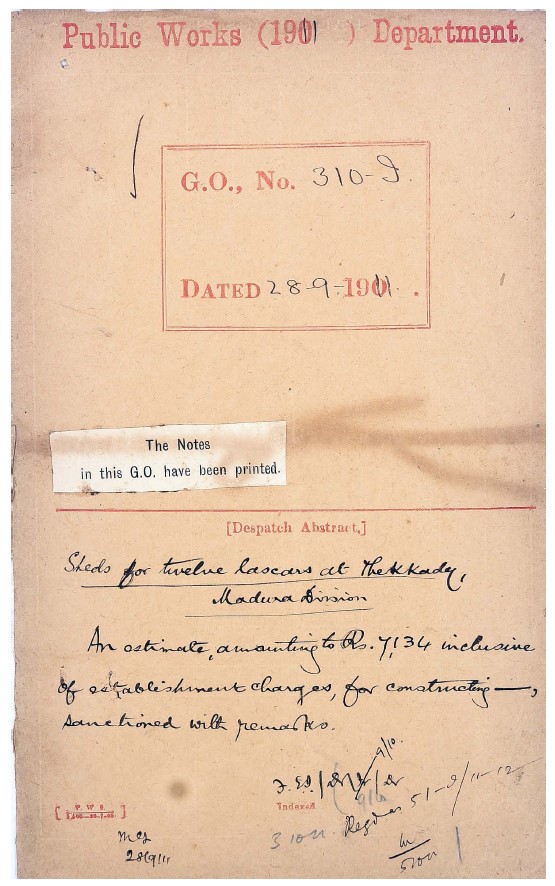 Public Works (1911 ) Department.
G.O., No. 310-I.
DATED 28-9-1911.
The Notes
in this G.O. have been printed.
[Despatch Abstract.]
Sheds for twelve lascars at Thekkady,
Madura Division
An estimate, amounting to Rs. 7,134 inclusive
of establishment charges, for constructing —,
sanctioned with remarks.
9/10.
Indexed
51-I/11-12
28/9/11